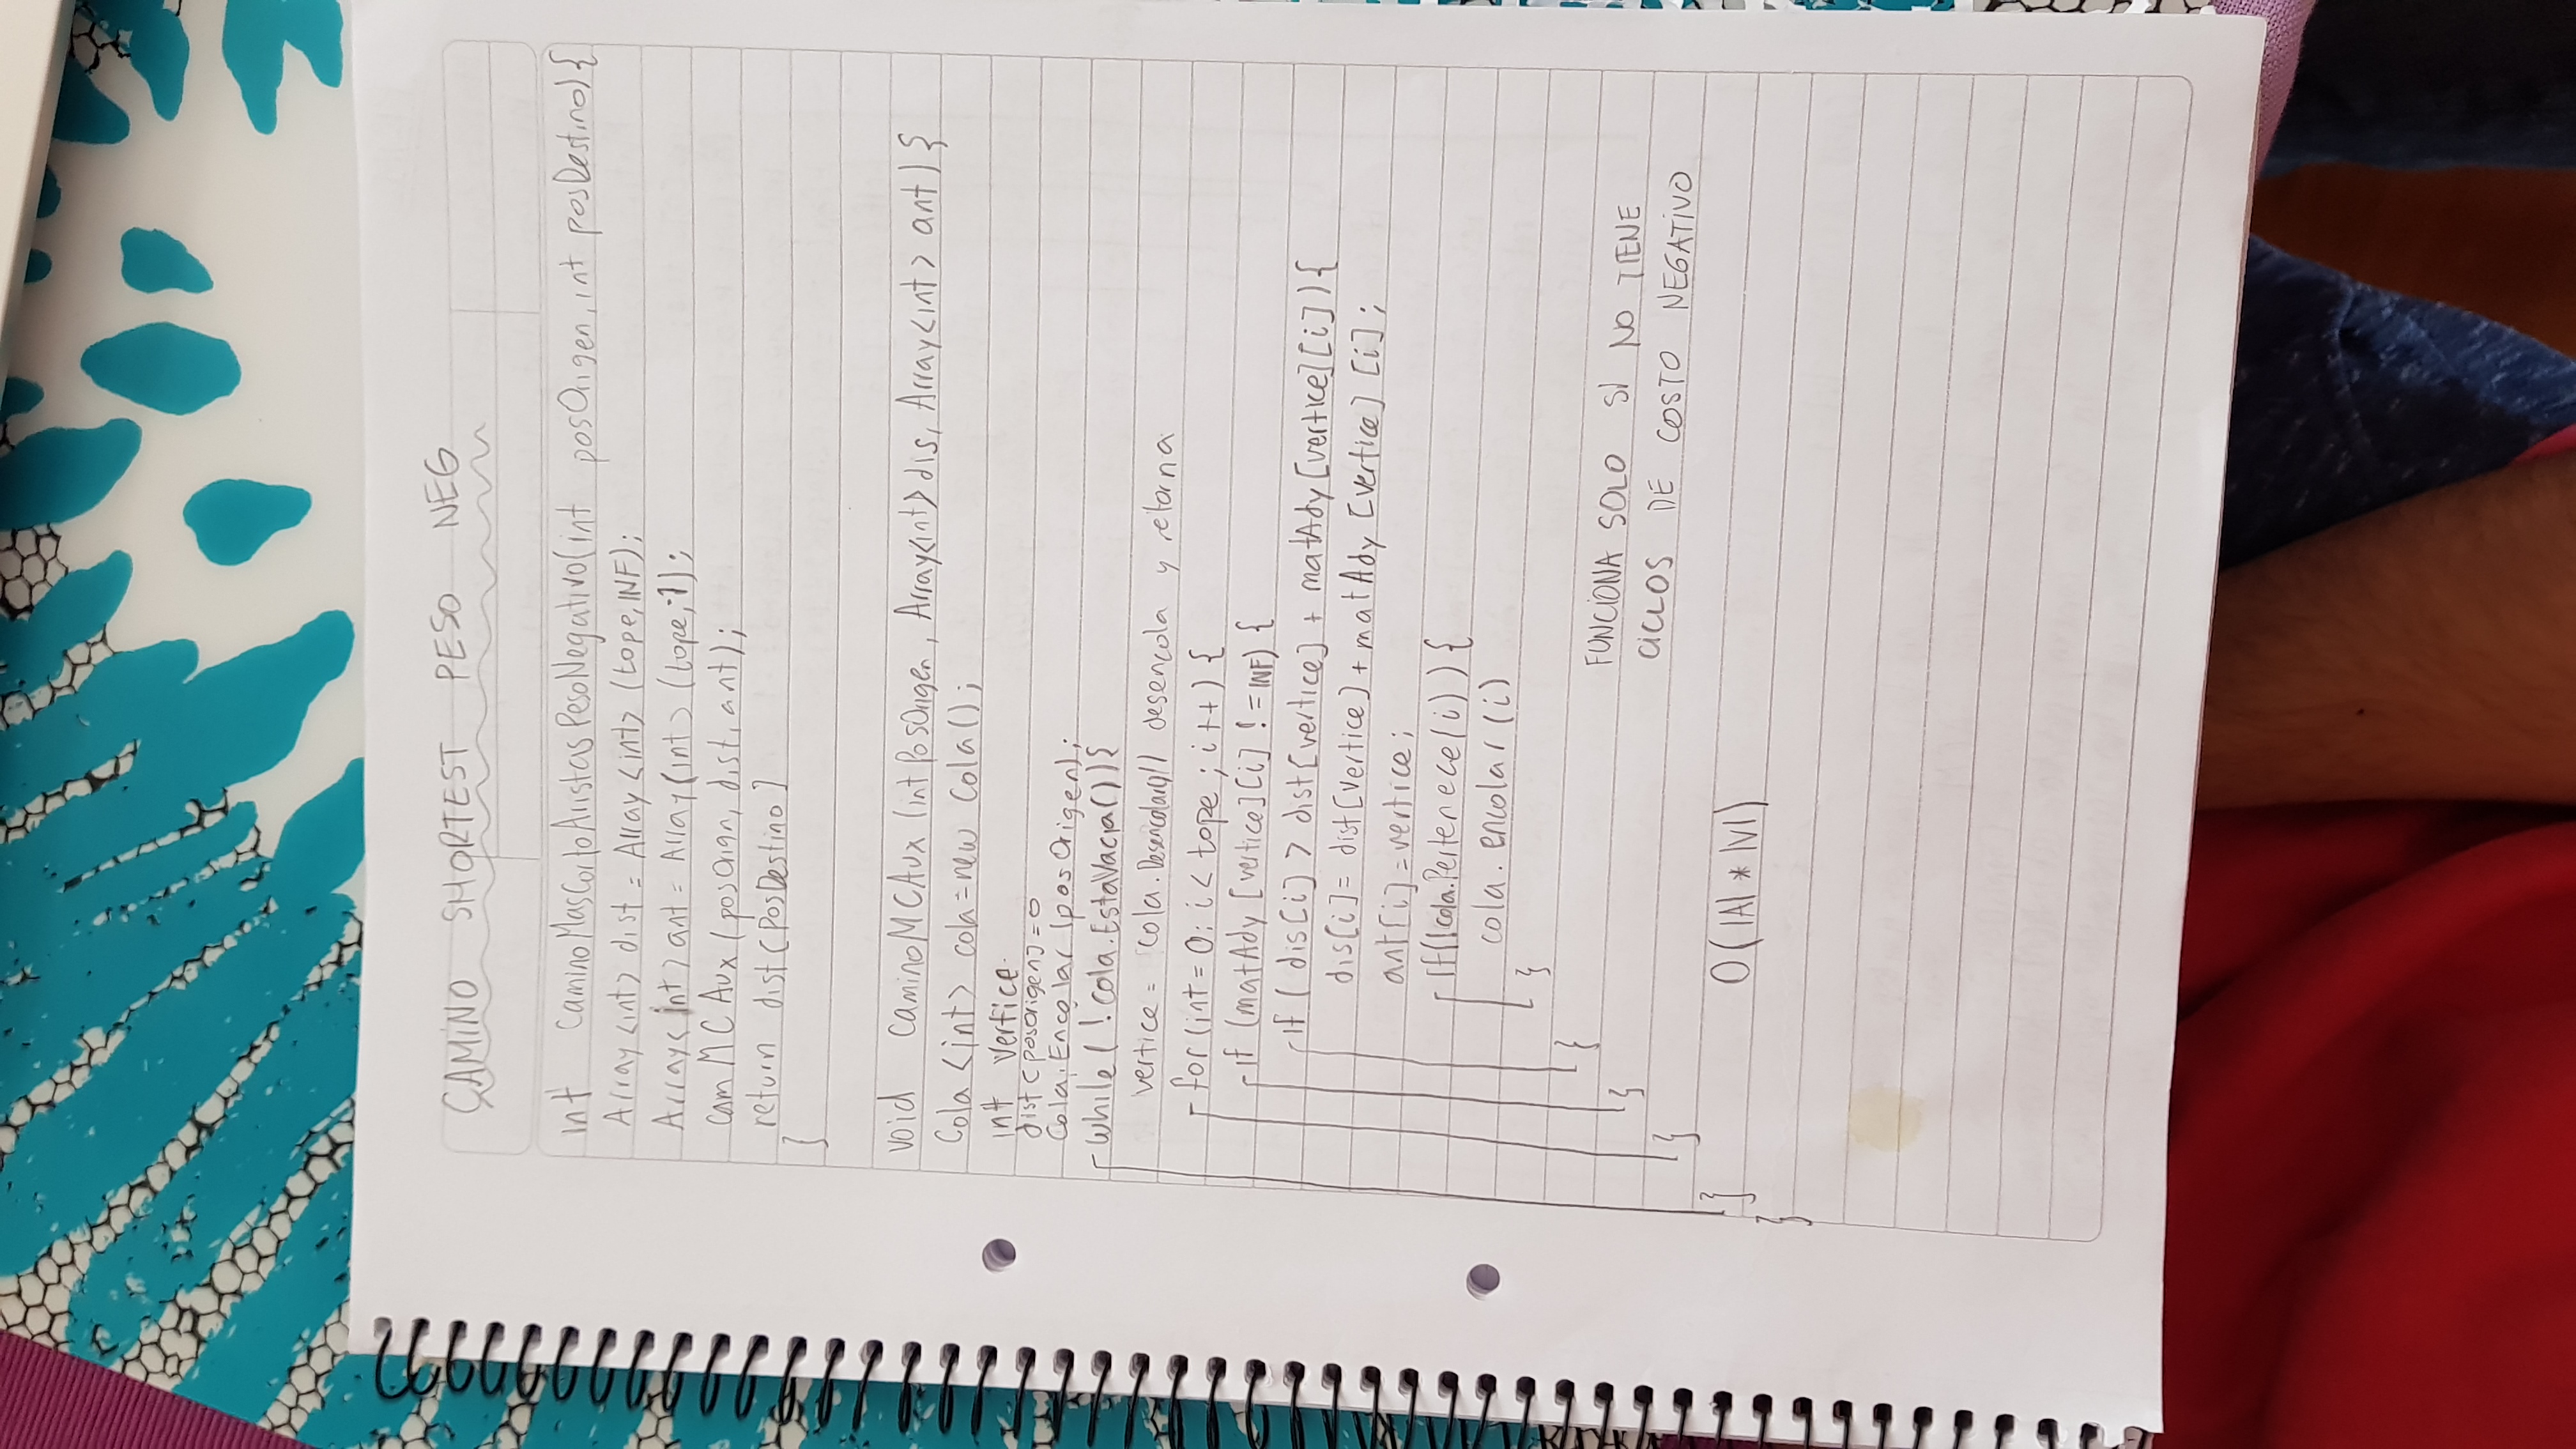 CAMINO SHORTEST PESO NEG
int CaminoMasCortoAristasPesoNegativo(int posOrigen, int posDestino){
Array<int> dist = Array<int> (tope, INF);
Array<int> ant = Array(int> (tope,-1);
cam MC Aux (posOrign, dist, ant);
return dist(PosDestino]
}
void CaminoMCAux (int PosOrigen, Array<int> dis, Array<int> ant) {
Cola <int> cola = new Cola();
int vertice.
dist(posOrigen]=0
Cola.Encolar(posOrigen);
while( !cola.EstaVacia()){
vertice = cola.Desencolar()// desencola y retorna
for(int= 0; i< tope ; i++) {
if (matAdy [vertice][i] != INF) {
if ( dis[i] > dist[vertice] + matAdy [vertice][i]){
dis[i]= dist[vertice]+matAdy [vertice] [i];
ant[i]=vertice;
if(!cola.Pertenece(i)){
cola. encolar (i)
}
}
}
}
}
}
FUNCIONA SOLO SI NO TIENE
CICLOS DE COSTO NEGATIVO
O(|A| * |V|)